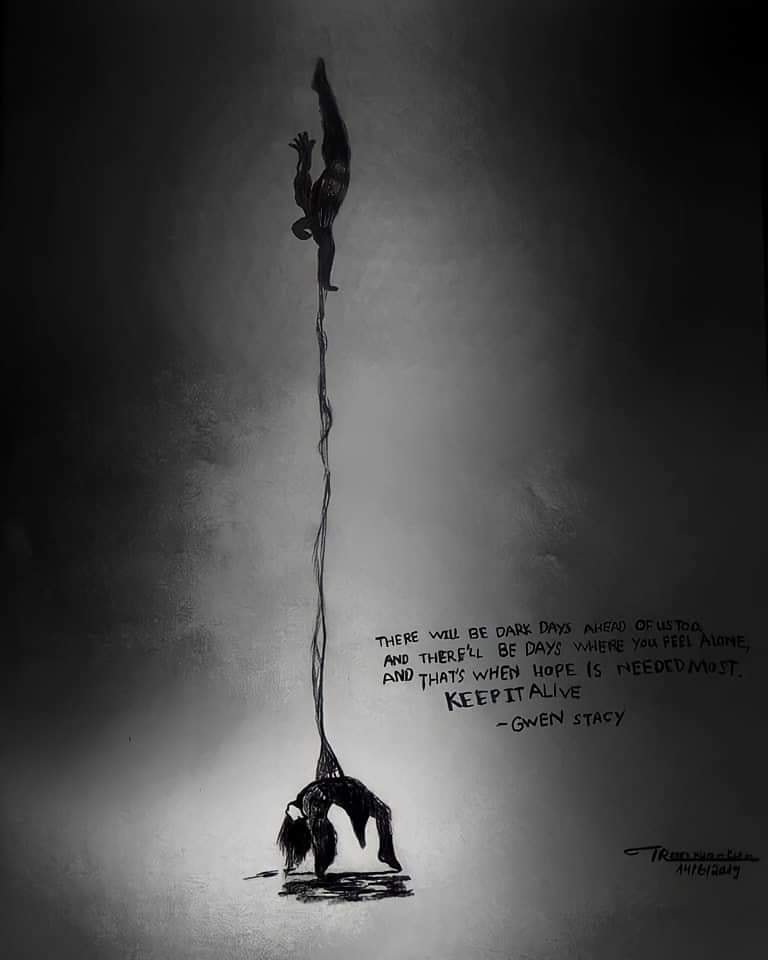 THERE WILL BE DARK DAYS AHEAD OF US TOO,
AND THERE'LL BE DAYS WHERE YOU FEEL ALONE,
AND THAT'S WHEN HOPE IS NEEDED MOST.
KEEP IT ALIVE
~GWEN STACY
14/6/2019